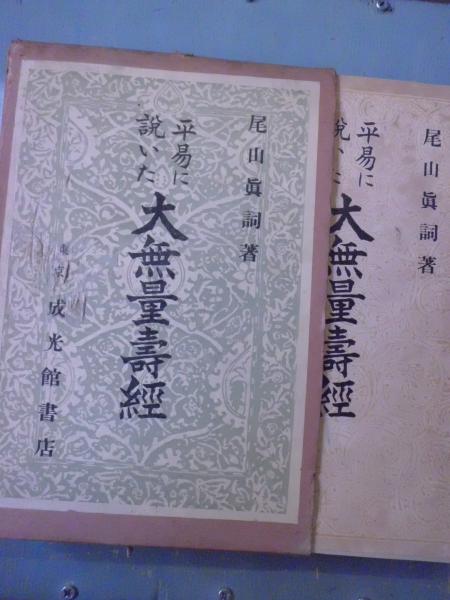 尾山眞詞著
平易に
説いた
大無量壽經
東京
成光館書店
尾山眞詞著
平易に
説いた
大無量壽經